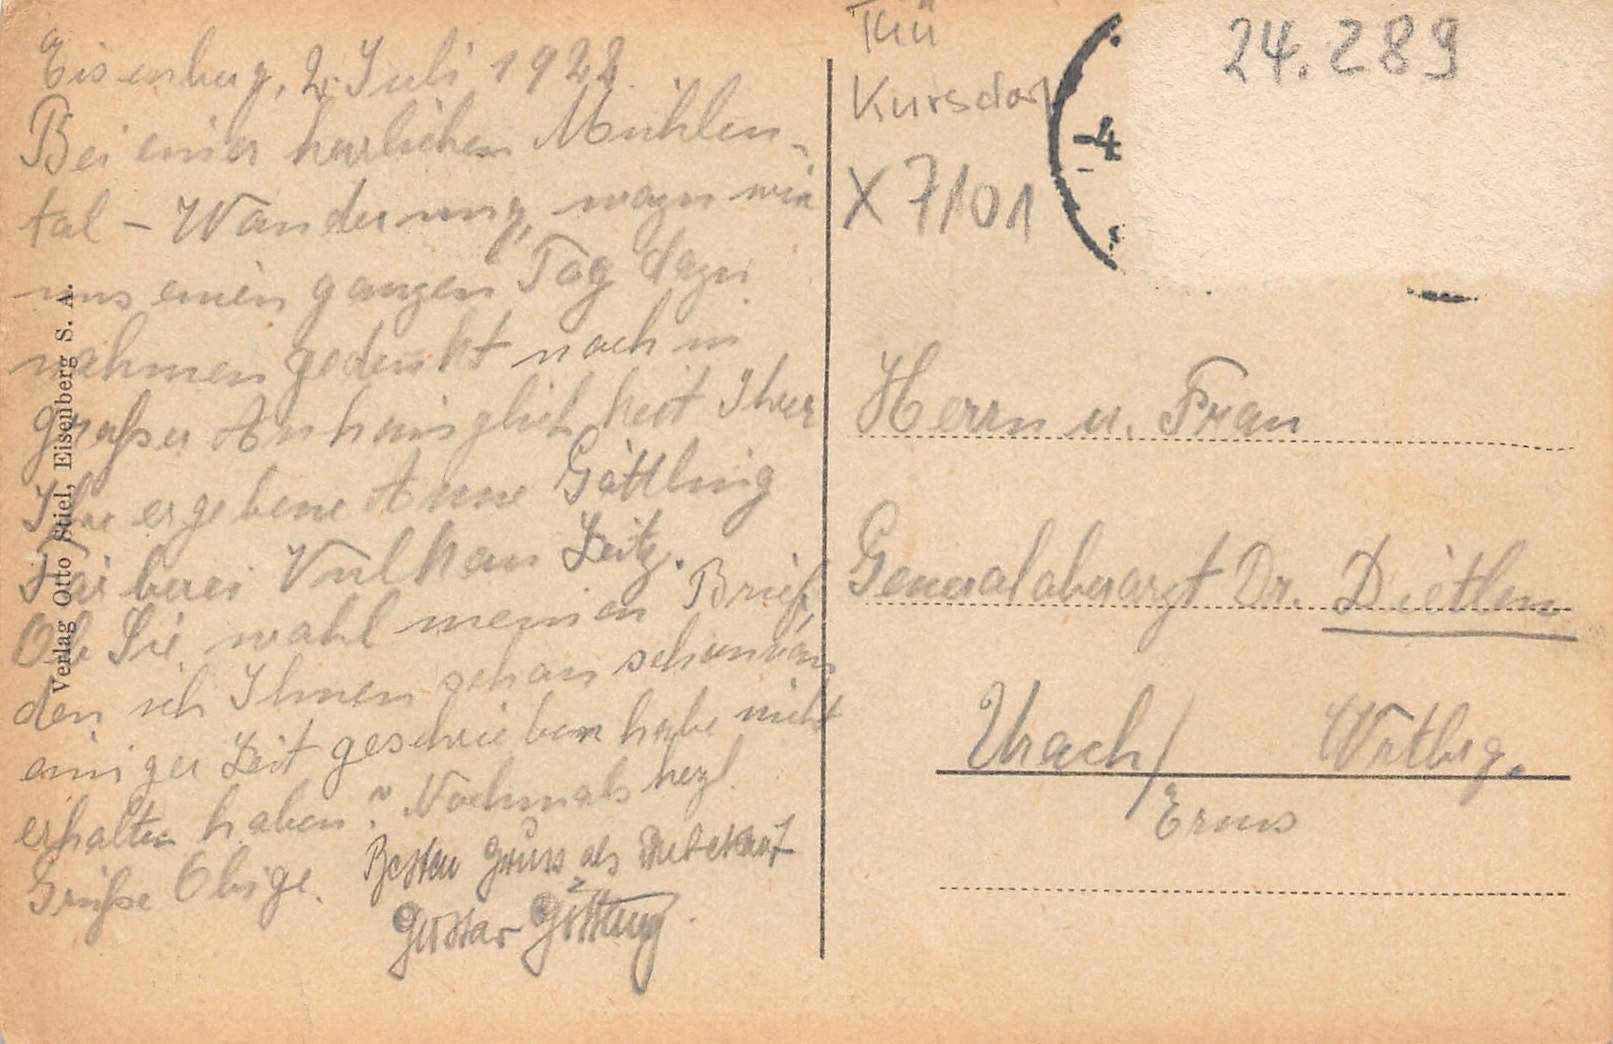 Eisenberg, 2. Juli 1922.
Bei einer herrlichen Mühlen-
tal - Wanderung, wozu wir
uns einen ganzen Tag dazu
nahmen gedenkt noch in
großer Anhänglichkeit Ihrer
Ihre ergebene Anne Göttling
Färberei Vulkan Zeitz.
Ob Sie wohl meinen Brief,
den ich Ihnen schon schon vor
einiger Zeit geschrieben habe nicht
erhalten haben? Nochmals herzl.
Grüße Obige.
Besten Gruss als Unbekannt
Gustav Göttling.
Verlag Otto Stiel, Eisenberg S. A.
Thü
Kursdorf
X 7101
-4
24.289
Herrn u. Frau
Generaloberarzt Dr. Dietlen
Urach/ Wrtbrg.
Erms